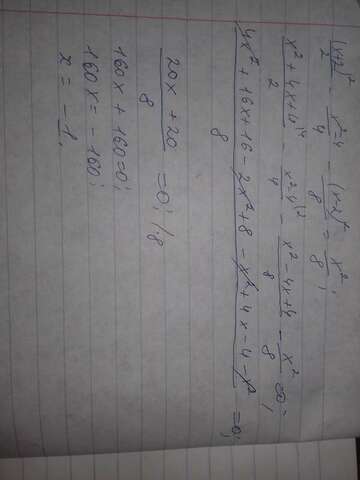 (x+2)²/2 - x²-4/4 - (x-2)²/8 = x²/8;
x²+4x+4|⁴/2 - x²-4|²/4 - x²-4x+4/8 - x²/8 = 0 =
4x² + 16x + 16 - 2x² + 8 - x² + 4x - 4 - x²/8 = 0;
20x + 20/8 = 0; /·8
160x + 160 = 0;
160x = -160;
x = -1.